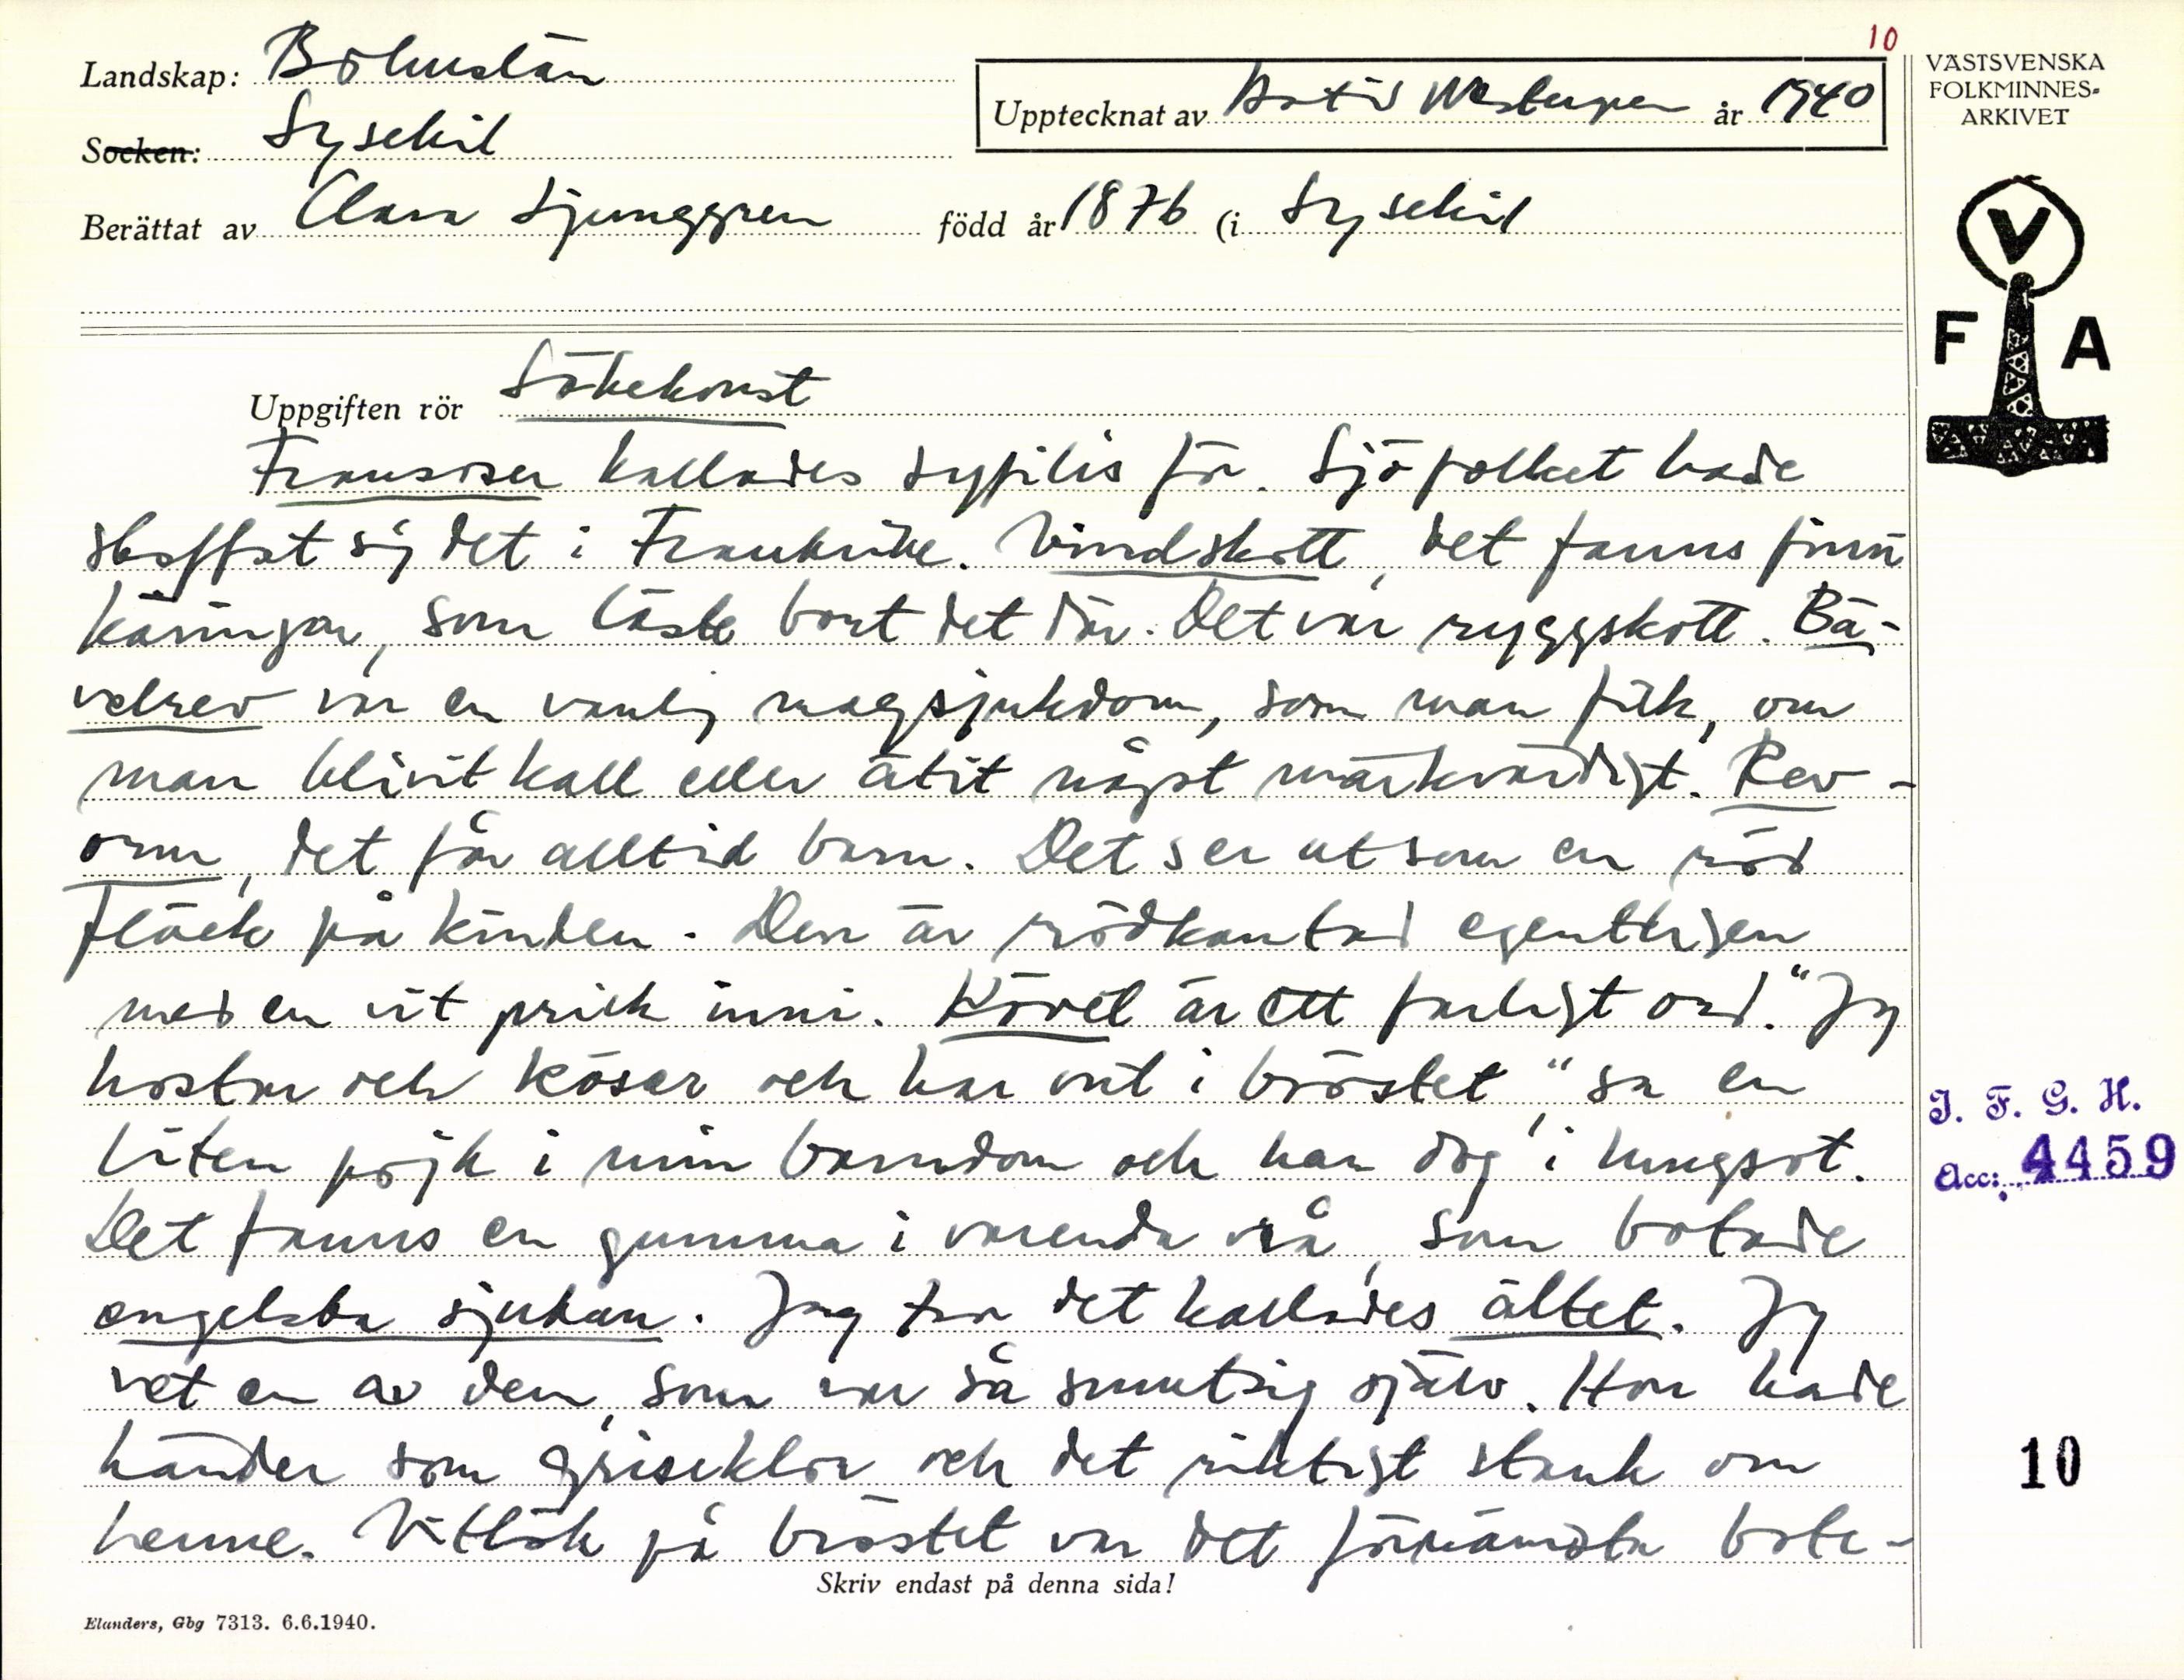 10
Landskap: Bohuslän
Socken: Lysekil
Upptecknat av Westergren år 1940
Berättat av Clara Ljunggren född år 1876 (i Lysekil
VÄSTSVENSKA
FOLKMINNES-
ARKIVET
V
F A
Uppgiften rör Läkekonst
Fransoser kallades syfilis för. Sjöfolket hade
skaffat sig det i Frankrike. Vindskott, det fanns finn
käringar, som läste bort det där. Det var ryggskott. Bä-
velrev var en vanlig magsjukdom, som man fick, om
man blivit kall eller ätit någst märkvärdigt. Rev-
orm, det får alltid barn. Det ser ut som en röd
fläck på kinden. Den är rödkantad egentligen
med en vit prick inni. Kövel är ett farligt ord. "Jag
hostar och köser och har ont i bröstet", sa en
liten pojk i min barndom och han dog i lungsot.
Det fanns en gumma i varenda vrå, som botade
engelska sjukan. Jag tror det kallades ältet. Jag
vet en av dem, som var så smutsig själv. Hon hade
händer som griseklor och det riktigt stank om
henne. Vitlök på bröstet var det förnämsta bote-
J. F. G. H.
Acc: 4459
10
Skriv endast på denna sida!
Elanders, Gbg 7313. 6.6.1940.